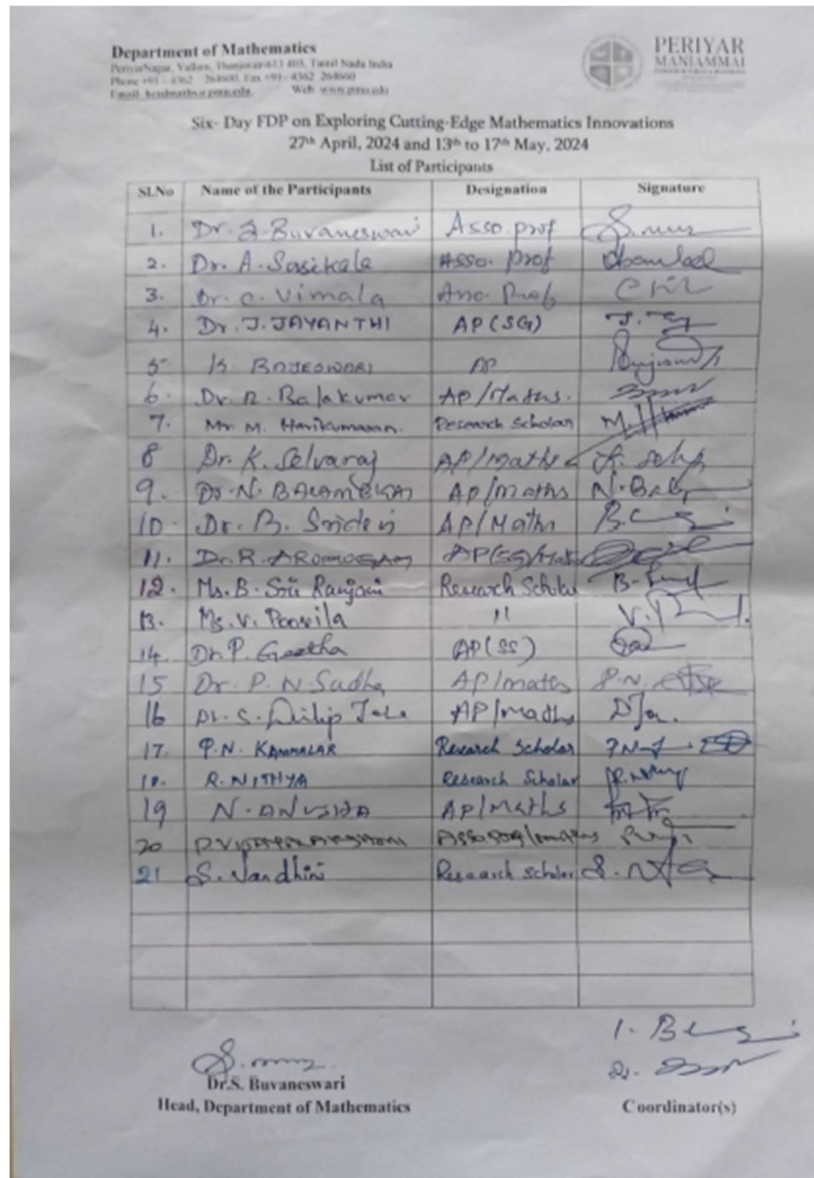 Department of Mathematics
PeriyarNagar, Vallam, Thanjavur-613 403, Tamil Nadu India
Phone +91 - 4362 - 264600, Fax +91- 4362- 264660
Email. Web www.pmu.edu
PERIYAR
MANIAMMAI
Six- Day FDP on Exploring Cutting-Edge Mathematics Innovations
27th April, 2024 and 13th to 17th May, 2024
List of Participants
Sl.No Name of the Participants Designation Signature
1. Dr. S. Buvaneswari Asso. prof
2. Dr. A. Sasikala Asso. prof
3. Dr. C. Vimala Asso. Prof
4. Dr. J. JAYANTHI AP (SG)
5 K. RAJESWARI AP
6. Dr. R. Balakumar AP/Maths.
7. Mr. M. Harikumaran. Research Scholar
8 Dr. K. Selvaraj AP/maths
9. Dr. N. AP/maths
10. Dr. B. Sridevi AP/Maths
11. Dr. R. AP(SG)/Mat
12. Ms. B. Sri Ranjani Research Scholar
13. Ms. V. Poovila "
14. Dr. P. Geetha AP(SS)
15 Dr. P. N Sudha AP/maths
16 Dr. S. Dilip AP/maths
17. P.N. KAMMALAR Research Scholar
18. R. NITHYA Research Scholar
19 N. ANUSHA AP/Maths
20
21 S. Nandhini Research Scholar
1.
2.
Dr.S. Buvaneswari
Head, Department of Mathematics Coordinator(s)